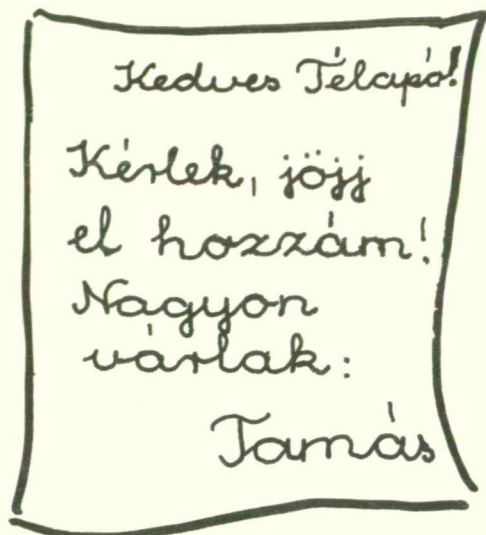 Kedves Télapó!
Kérlek, jöjj
el hozzám!
Nagyon
várlak:
Tamás